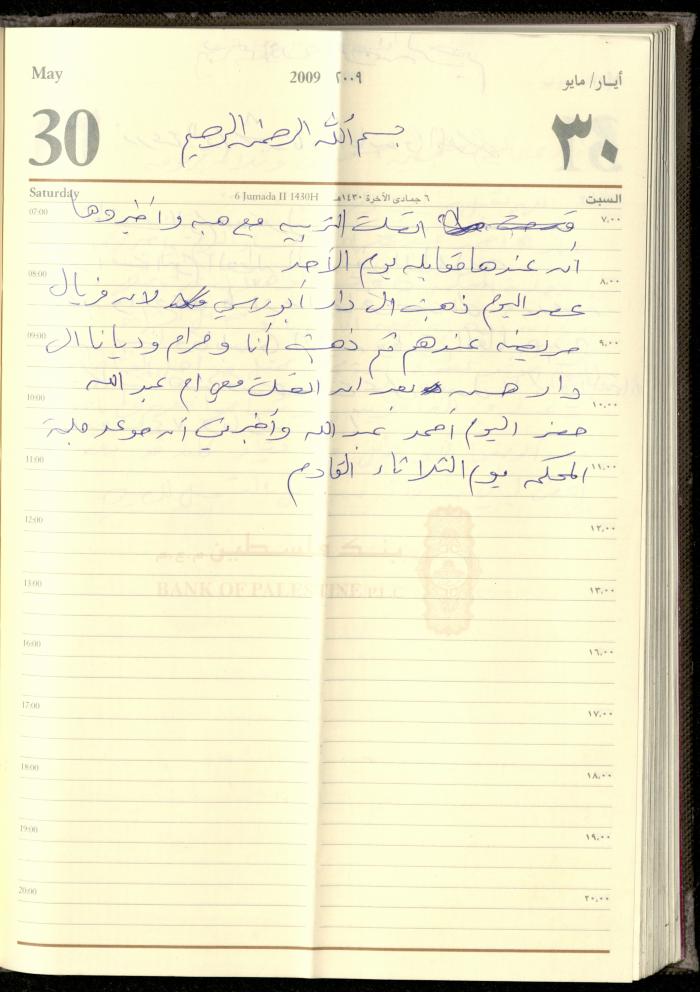 May 2009 ٢٠٠٩ أيـار/ مايو
30 بسم الله الرحمن الرحيم ٣٠
Saturday 6 Jumada II 1430H ٦ جمادى الآخرة ١٤٣٠هـ السبت
07:00 اتصلت التربيه مع هبه وأخبروها ٧،٠٠
أنه عندها مقابله يوم الأحد
08:00 ٨،٠٠
عصر اليوم ذهبت الى دار أبو لانه فريال
09:00 ٩،٠٠
مريضه عندهم ثم ذهبت أنا ومرام وديانا الى
دار بعد ان اتصلت معي ام عبد الله
10:00 ١٠،٠٠
حضر اليوم أحمد عبد الله وأخبرني أنه موعد جلسة
11:00 ١١،٠٠
المحكمه يوم الثلاثاء القادم
12:00 ١٢،٠٠
بنك فلسطين م.ع.م
13:00 ١٣،٠٠
BANK OF PALESTINE PLC
16:00 ١٦،٠٠
17:00 ١٧،٠٠
18:00 ١٨،٠٠
19:00 ١٩،٠٠
20:00 ٢٠،٠٠